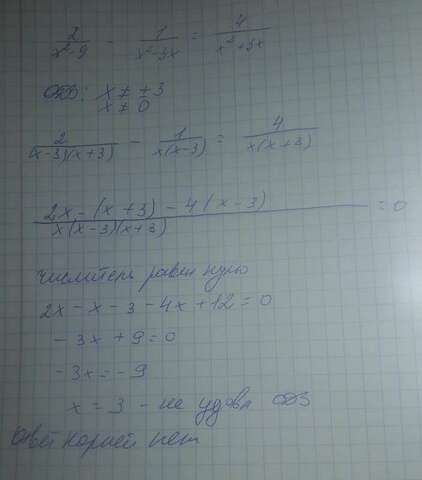 2/(x²-9) - 1/(x²-3x) = 4/(x²+3x)
ОДЗ: x ≠ ±3
x ≠ 0
2/((x-3)(x+3)) - 1/(x(x-3)) = 4/(x(x+3))
(2x - (x+3) - 4(x-3))/(x(x-3)(x+3)) = 0
числитель равен нулю
2x - x - 3 - 4x + 12 = 0
- 3x + 9 = 0
- 3x = - 9
x = 3 - не удовл ОДЗ
Ответ корней нет